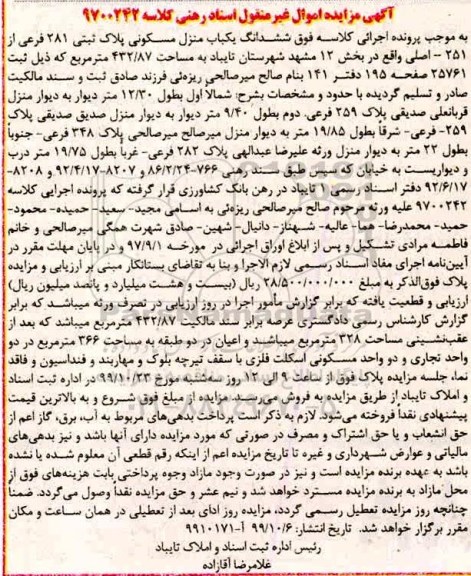 آگهی مزایده اموال غیرمنقول اسناد رهنی کلاسه ۹۷۰۰۲۴۲
به موجب پرونده اجرائی کلاسه فوق ششدانگ یکباب منزل مسکونی پلاک ثبتی ۲۸۱ فرعی از
۲۵۱ – اصلی واقع در بخش ۱۲ مشهد شهرستان تایباد به مساحت ۴۳۲/۸۷ مترمربع که ذیل ثبت
۲۵۷۶۱ صفحه ۱۹۵ دفتر ۱۴۱ بنام صالح میرصالحی ریزه‌ئی فرزند صادق ثبت و سند مالکیت
صادر و تسلیم گردیده با حدود و مشخصات بشرح: شمالاً اول بطول ۱۲/۳۰ متر دیوار به دیوار منزل
قربانعلی صدیقی پلاک ۲۵۹ فرعی. دوم بطول ۹/۴۰ متر دیوار به دیوار منزل صدیق صدیقی پلاک
۲۵۹- فرعی- شرقاً بطول ۱۹/۸۵ متر به دیوار منزل میرصالح میرصالحی پلاک ۳۴۸ فرعی- جنوباً
بطول ۲۲ متر به دیوار منزل ورثه علیرضا عبدالهی پلاک ۲۸۲ فرعی- غرباً بطول ۱۹/۷۵ متر درب
و دیواریست به خیابان که سپس طبق سند رهنی ۷۶۶-۸۶/۲/۲۴ و ۸۲۰۷-۹۲/۴/۱۷ و ۸۲۰۸-
۹۲/۶/۱۷ دفتر اسناد رسمی ۱ تایباد در رهن بانک کشاورزی قرار گرفته که پرونده اجرایی کلاسه
۹۷۰۰۲۴۲ علیه ورثه مرحوم صالح میرصالحی ریزه‌ئی به اسامی مجید- سعید- حمیده- محمود-
حمید- محمدرضا- هما- عالیه- شهناز- دانیال- شهین- صادق شهرت همگی میرصالحی و خانم
فاطمه مرادی تشکیل و پس از ابلاغ اوراق اجرائی در مورخه ۹۷/۹/۱ و در پایان مهلت مقرر در
آیین‌نامه اجرای مفاد اسناد رسمی لازم الاجرا و بنا به تقاضای بستانکار مبنی بر ارزیابی و مزایده
پلاک فوق‌الذکر به مبلغ ۲۸/۵۰۰/۰۰۰/۰۰۰ ریال (بیست و هشت میلیارد و پانصد میلیون ریال)
ارزیابی و قطعیت یافته که برابر گزارش مأمور اجرا در روز ارزیابی در تصرف ورثه میباشد که برابر
گزارش کارشناس رسمی دادگستری عرصه برابر سند مالکیت ۴۳۲/۸۷ مترمربع میباشد که بعد از
عقب‌نشینی مساحت ۳۲۸ مترمربع میباشند و اعیان در دو طبقه به مساحت ۳۶۶ مترمربع در دو
واحد تجاری و دو واحد مسکونی اسکلت فلزی با سقف تیرچه بلوک و مهاربند و فنداسیون و فاقد
نما، جلسه مزایده پلاک فوق از ساعت ۹ الی ۱۲ روز سه‌شنبه مورخ ۹۹/۱۰/۲۳ در اداره ثبت اسناد
و املاک تایباد از طریق مزایده به فروش می‌رسد. مزایده از مبلغ فوق شروع و به بالاترین قیمت
پیشنهادی نقداً فروخته می‌شود. لازم به ذکر است پرداخت بدهی‌های مربوط به آب، برق، گاز اعم از
حق انشعاب و یا حق اشتراک و مصرف در صورتی که مورد مزایده دارای آنها باشد و نیز بدهی‌های
مالیاتی و عوارض شهرداری و غیره تا تاریخ مزایده اعم از اینکه رقم قطعی آن معلوم شده یا نشده
باشد به عهده برنده مزایده است و نیز در صورت وجود مازاد وجوه پرداختی بابت هزینه‌های فوق از
محل مازاد به برنده مزایده مسترد خواهد شد و نیم عشر و حق مزایده نقداً وصول می‌گردد. ضمناً
چنانچه روز مزایده تعطیل رسمی گردد، مزایده روز ادای بعد از تعطیلی در همان ساعت و مکان
مقرر برگزار خواهد شد. تاریخ انتشار: ۹۹/۱۰/۶ آ-۹۹۱۰۱۷۱
رئیس اداره ثبت اسناد و املاک تایباد
غلامرضا آقازاده